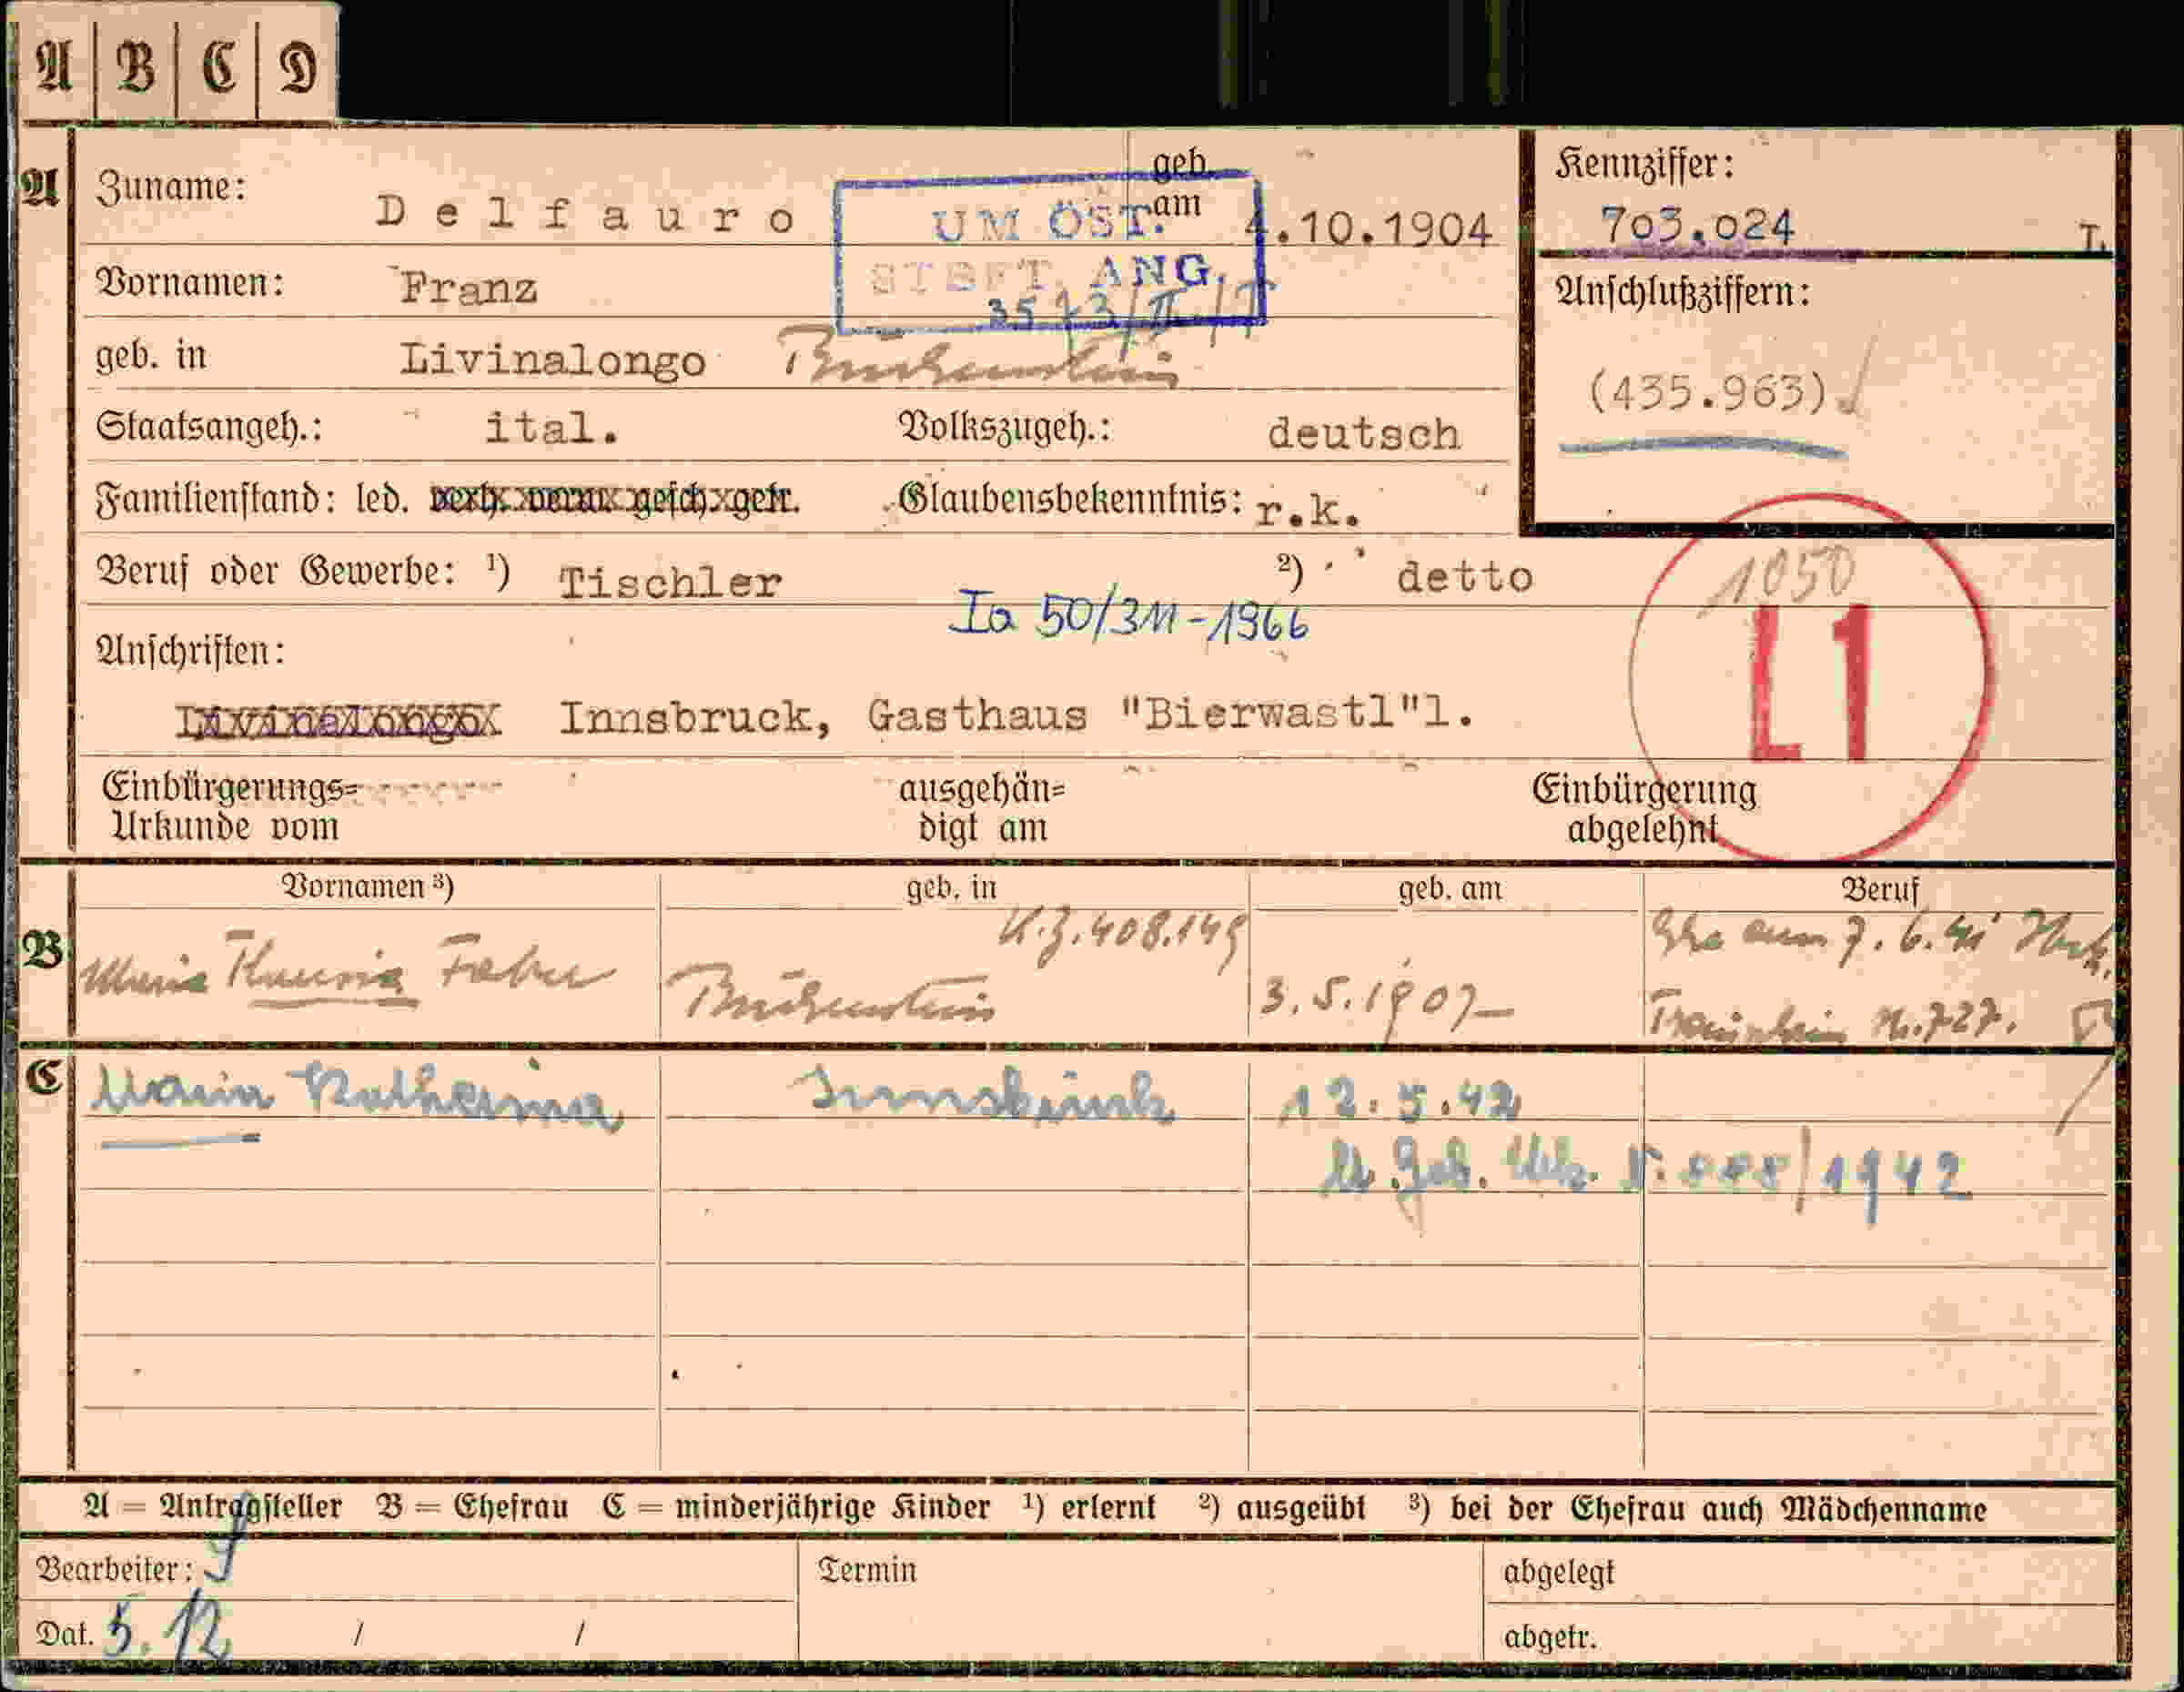 A B C D
A Zuname: Delfauro geb. am 4.10.1904
UM ÖST.
STBFT. ANG.
Kennziffer:
703.024 T.
Vornamen: Franz
Anschlußziffern:
(435.963)
geb. in Livinalongo Buchenstein
Staatsangeh.: ital. Volkszugeh.: deutsch
Familienstand: led. verh. verw. gesch. getr. Glaubensbekenntnis: r.k.
Beruf oder Gewerbe: ¹) Tischler ²) detto
1050
L1
Ia 50/311-1966
Anschriften:
Livinalongo Innsbruck, Gasthaus "Bierwastl"l.
Einbürgerungs= Urkunde vom ausgehän= digt am Einbürgerung abgelehnt
Vornamen ³) geb. in geb. am Beruf
B Maria Faber K.Z. 408.149 Buchenstein 3.5.1907
7.6.41
727.
C Maria Katharina Innsbruck 12.5.42
lt. Geb. Urk. /1942
A = Antragsteller B = Ehefrau C = minderjährige Kinder ¹) erlernt ²) ausgeübt ³) bei der Ehefrau auch Mädchenname
Bearbeiter: Termin abgelegt
Dat. 5.12 / / abgetr.